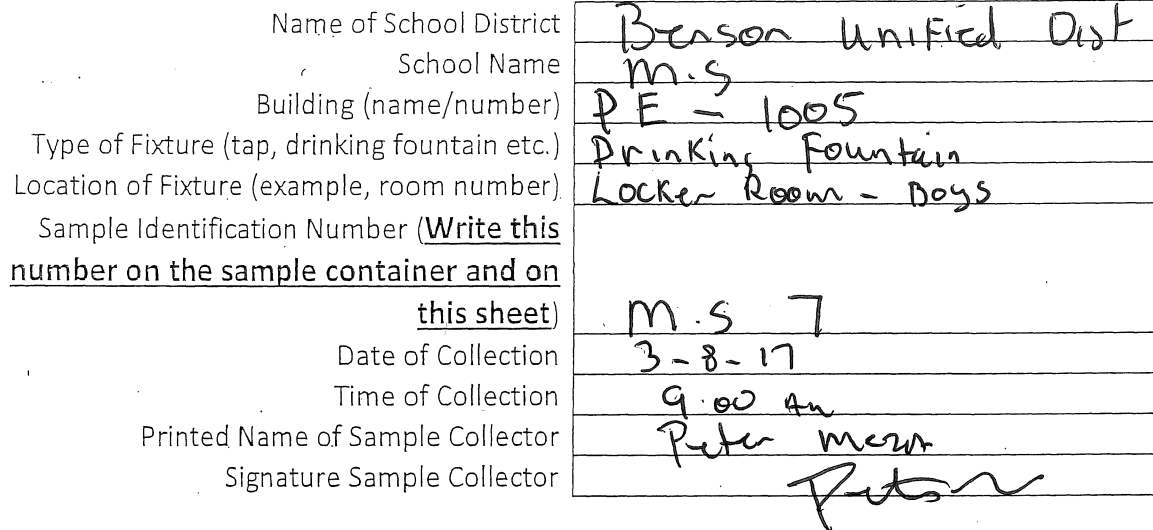 Name of School District Benson Unified Dist
School Name M.S
Building (name/number) PE - 1005
Type of Fixture (tap, drinking fountain etc.) Drinking Fountain
Location of Fixture (example, room number) Locker Room - Boys
Sample Identification Number (Write this
number on the sample container and on
this sheet) M.S 7
Date of Collection 3-8-17
Time of Collection 9.00 AM
Printed Name of Sample Collector Peter
Signature Sample Collector